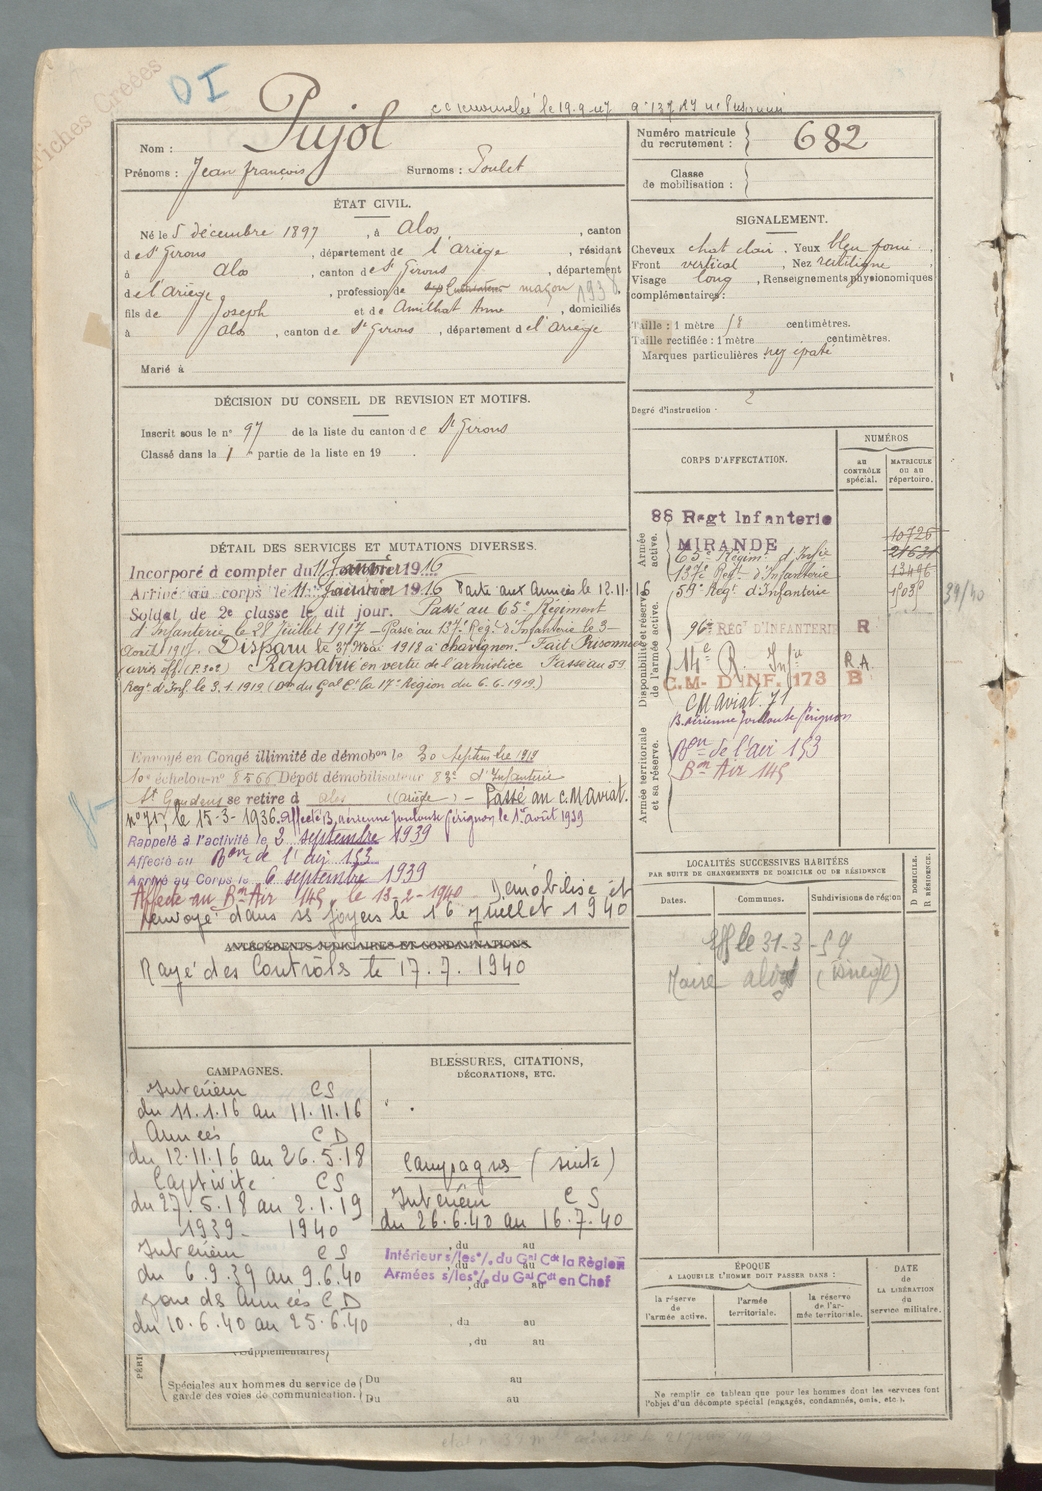 Fiches Créées
DI
Nom : Pujol
Prénoms : Jean françois Surnoms : Poulet
ÉTAT CIVIL.
Né le 5 décembre 1897, à alos, canton
de St Girons, département de l'ariège, résidant
à alos, canton de St Girons, département
de l'ariège, profession de maçon 1938
fils de Joseph et de Amilhat Anne, domiciliés
à alos, canton de St Girons, département de l'ariège
Marié à
DÉCISION DU CONSEIL DE REVISION ET MOTIFS.
Inscrit sous le n° 97 de la liste du canton de St Girons
Classé dans la 1 partie de la liste en 19 .
DÉTAIL DES SERVICES ET MUTATIONS DIVERSES.
Incorporé à compter du 11 Janvier 1916
Arrivé au corps le 11 Janvier 1916 Parti aux Armées le 12.11.16
Soldat de 2e classe le dit jour. Passé au 65e Régiment
d'Infanterie le 28 Juillet 1917 – Passé au 137e Régt d'Infanterie le 3
août 1917. Disparu le 27 mai 1918 à chavignon. Fait Prisonnier
(avis off. (P.302) Rapatrié en vertu de l'armistice Passé au 59
Regt d'Inf. le 3.1.1919 (On du Gal Ct la 17e Région du 6.6.1919.)
Envoyé en Congé illimité de démobon le 30 Septembre 1919
10e échelon-n° 8566 Dépôt démobilisateur 83e d'Infanterie
St Gaudens se retire à alos (ariège) – Passé au c.M aviat.
n° 71, le 15-3-1936. Affecté B. aérienne Toulouse Pérignon le 1er août 1939
Rappelé à l'activité le 2 septembre 1939
Affecté au Bon de l'air 153
Arrivé au Corps le 6 septembre 1939
Affecté au Bon Air 145 le 13-2-1940 Démobilisé et
renvoyé dans ses foyers le 16 Juillet 1940
ANTÉCÉDENTS JUDICIAIRES ET CONDAMNATIONS.
Rayé des Contrôles le 17.7.1940
CAMPAGNES.
Intérieur CS
du 11.1.16 au 11.11.16
Armées CD
du 12.11.16 au 26.5.18
Captivité CS
du 27.5.18 au 2.1.19
1939 - 1940
Intérieur CS
du 6.9.39 au 9.6.40
zone des Armées CD
du 10.6.40 au 25.6.40
(Supplémentaires)
Spéciales aux hommes du service de garde des voies de communication.
Du au
Du au
BLESSURES, CITATIONS,
DÉCORATIONS, ETC.
Campagnes (suite)
Intérieur CS
du 26.6.40 au 16.7.40
, du au
Intérieur s/les °/. du Gal Cdt la Région
, du au
Armées s/les °/. du Gal Cdt en Chef
, du au
, du au
, du au
Numéro matricule
du recrutement : 682
Classe
de mobilisation :
SIGNALEMENT.
Cheveux chat clair. Yeux bleu foncé,
Front vertical, Nez rectiligne,
Visage long, Renseignements physionomiques
complémentaires :
Taille : 1 mètre 58 centimètres.
Taille rectifiée : 1 mètre centimètres.
Marques particulières : nez épaté
Degré d'instruction : 2
CORPS D'AFFECTATION.
NUMÉROS
au CONTRÔLE spécial.
MATRICULE ou au répertoire.
Armée active.
88 Regt Infanterie 10726
MIRANDE
65e Régimt d'Infie 21631
137e Régt d'Infanterie 13496
59e Regt d'Infanterie
39/40
Disponibilité et réserve de l'armée active.
96e RÉGt D'INFANTERIE R
14e R. Infie R.A.
C.M- D'INF. 173 B
CM aviat. 71
Armée territoriale et sa réserve.
B. aérienne Toulouse Pérignon
Bon de l'air 153
Bon Air 145
LOCALITÉS SUCCESSIVES HABITÉES
PAR SUITE DE CHANGEMENTS DE DOMICILE OU DE RÉSIDENCE
Dates. Communes. Subdivisions de région
D DOMICILE. R RÉSIDENCE.
le 31-3-59
Maire alos (Ariège)
ÉPOQUE
A LAQUELLE L'HOMME DOIT PASSER DANS :
la réserve de l'armée active.
l'armée territoriale.
la réserve de l'armée territoriale.
DATE
de
LA LIBÉRATION
du
service militaire.
Ne remplir ce tableau que pour les hommes dont les services font
l'objet d'un décompte spécial (engagés, condamnés, omis, etc.).